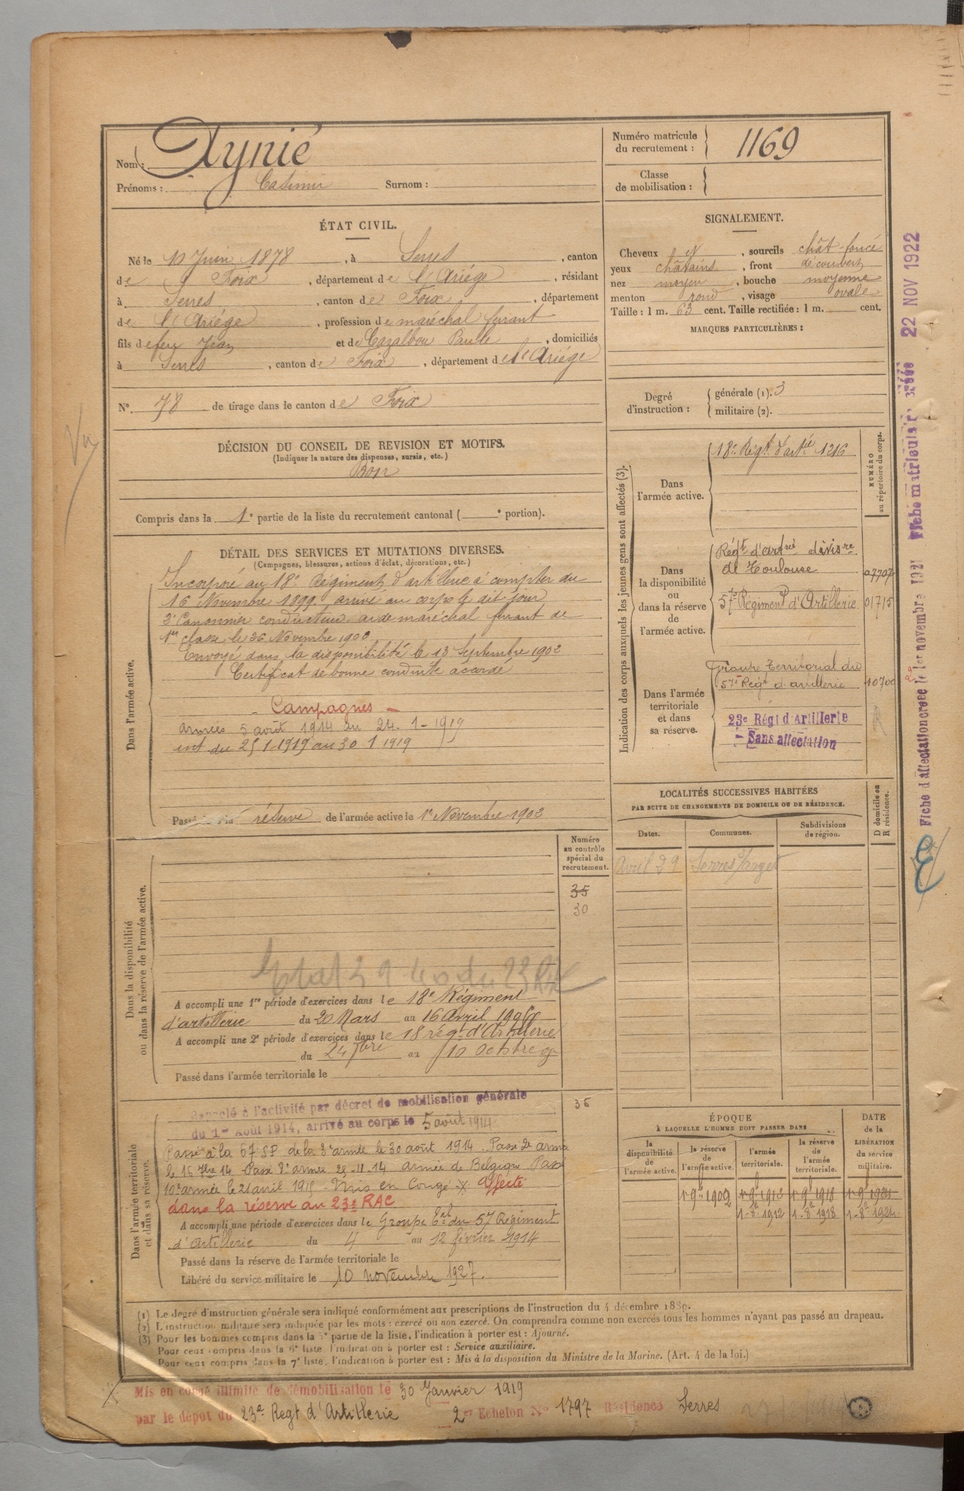 Nom : Aynié
Prénoms : Casimir Surnom :
Numéro matricule du recrutement : 1169
Classe de mobilisation :
ÉTAT CIVIL.
Né le 10 Juin 1878, à Serres, canton
de Foix, département de l'Ariège, résidant
à Serres, canton de Foix, département
de l'Ariège, profession de maréchal ferrant
fils de feu Jean et de Cazalbou Paule, domiciliés
à Serres, canton de Foix, département de l'Ariège
N°. 78 de tirage dans le canton de Foix
SIGNALEMENT.
Cheveux et, sourcils chât. foncé
yeux châtains, front découvert
nez moyen, bouche moyenne
menton rond, visage ovale
Taille : 1 m. 63 cent. Taille rectifiée : 1 m. cent.
MARQUES PARTICULIÈRES :
Degré d'instruction : générale (1). 3
militaire (2).
DÉCISION DU CONSEIL DE REVISION ET MOTIFS.
(Indiquer la nature des dispenses, sursis, etc.)
Bon
Compris dans la 1e partie de la liste du recrutement cantonal ( e portion).
DÉTAIL DES SERVICES ET MUTATIONS DIVERSES.
(Campagnes, blessures, actions d'éclat, décorations, etc.)
Dans l'armée active.
Incorporé au 18e Régiment d'artillerie à compter du
16 Novembre 1899, arrivé au corps le dit jour
2e Canonnier conducteur aide maréchal ferrant de
1re classe le 26 Novembre 1900
Envoyé dans la disponibilité le 13 Septembre 1902
Certificat de bonne conduite accordé
- Campagnes -
armées 5 août 1914 au 24.1-1919
int du 25 1-1919 au 30 1 1919
Passé dans la réserve de l'armée active le 1er Novembre 1902
Indication des corps auxquels les jeunes gens sont affectés (3).
NUMÉRO au répertoire du corps.
Dans l'armée active.
18e Régt d'artie 1216
Dans la disponibilité ou dans la réserve de l'armée active.
Régt d'artie divisre
de Toulouse 07707
57e Régiment d'Artillerie 01715
Dans l'armée territoriale et dans sa réserve.
Groupe Territorial du
57e Régt d'artillerie 10700
23e Régt d'Artillerie
Sans affectation
LOCALITÉS SUCCESSIVES HABITÉES
PAR SUITE DE CHANGEMENTS DE DOMICILE OU DE RÉSIDENCE.
Dates. Communes. Subdivisions de région. D domicile ou R résidence.
Avril 29 Serres
Dans la disponibilité ou dans la réserve de l'armée active.
Numéro au contrôle spécial du recrutement.
35
30
A accompli une 1re période d'exercices dans le 18e Régiment
d'artillerie du 20 Mars au 16 Avril 1906
A accompli une 2e période d'exercices dans le 18 régt d'Artillerie
du 24 7bre au 10 Octobre 09
Passé dans l'armée territoriale le
Dans l'armée territoriale et dans sa réserve.
36
Rappelé à l'activité par décret de mobilisation générale
du 1er Août 1914, arrivé au corps le 5 août 1914
Passé à la 67 SP de la 3e armée le 30 août 1914. Passé 2e armée
le 15 7bre 14 Passé 8e armée 24-11-14 armée de Belgique Passé
10e armée le 21 avril 1915 Mis en Congé x Affecté
dans la réserve au 23e RAC
A accompli une période d'exercices dans le Groupe du 57 Régiment
d'Artillerie du 4 au 12 février 1914
Passé dans la réserve de l'armée territoriale le
Libéré du service militaire le 10 novembre 1927.
ÉPOQUE
A LAQUELLE L'HOMME DOIT PASSER DANS
la disponibilité de l'armée active. la réserve de l'armée active. l'armée territoriale. la réserve de l'armée territoriale.
DATE de la LIBÉRATION du service militaire.
1-9bre 1902 1-9 1913 1-9 1918
1-8e 1912 1-8e 1918 1-8e 1924
(1) Le degré d'instruction générale sera indiqué conformément aux prescriptions de l'instruction du 4 décembre 1889.
(2) L'instruction militaire sera indiquée par les mots : exercé ou non exercé. On comprendra comme non exercés tous les hommes n'ayant pas passé au drapeau.
(3) Pour les hommes compris dans la 5e partie de la liste, l'indication à porter est : Ajourné.
Pour ceux compris dans la 6e liste, l'indication à porter est : Service auxiliaire.
Pour ceux compris dans la 7e liste, l'indication à porter est : Mis à la disposition du Ministre de la Marine. (Art. 4 de la loi.)
Mis en congé illimité de démobilisation le 30 Janvier 1919
par le dépôt du 23e Regt d'Artillerie 2e Echelon N° 1797 Résidence Serres
22 NOV 1922